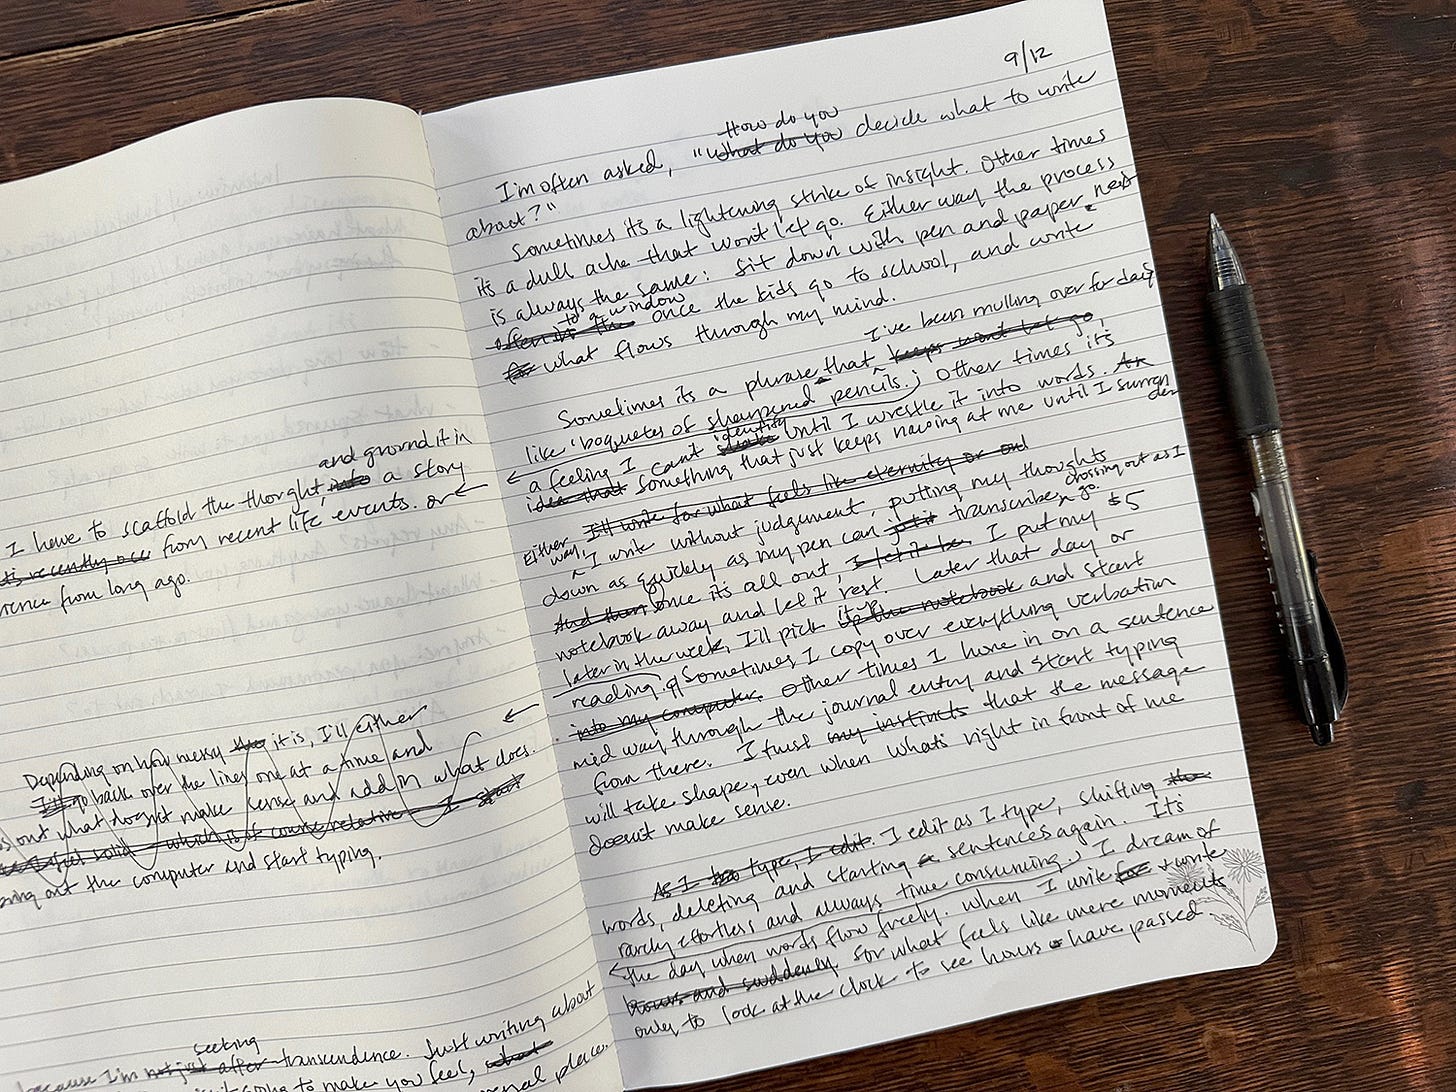 and ground it in
I have to scaffold the thought, into a story
it's recently occ from recent life events. or
from long ago.
Depending on how messy it is, I'll either
I'll go back over the lines one at a time and
out what doesn't make sense and add in what does.
feel solid - which is of course relative - I start
out the computer and start typing.
seeking
because I'm not just after transcendence. Just writing about
going to make you feel, what
place.
9/12
How do you
I'm often asked, "What do you decide what to write
about?"
Sometimes it's a lightening strike of insight. Other times
it's a dull ache that won't let go. Either way the process
is always the same: sit down with pen and paper, next
to a window
often in the once the kids go to school, and write
for what flows through my mind.
I've been mulling over for days
Sometimes it's a phrase that keeps wont let go,
like 'boquetes of sharpened pencils.; Other times it's
identify
a feeling I can't shake until I wrestle it into words. An
idea that something that just keeps naving at me until I surren
der
I'll write for what feels like eternity or out
Either
way, I write without judgement, putting my thoughts
crossing out as I
go.
down as quickly as my pen can just transcribe,
And then once it's all out, I let it be, I put my $5
notebook away and let it rest. Later that day or
it up
later in the week, I'll pick up the notebook and start
reading. Sometimes I copy over everything verbatim
into my computer. Other times I hone in on a sentence
mid way through the journal entry and start typing
from there. I trust my instincts that the message
will take shape, even when what's right in front of me
doesn't make sense.
As I type, I edit. I edit as I type, shifting
words, deleting and starting a sentences again. It's
rarely effortless and always time consuming.; I dream of
the day when words flow freely. When I write for + write
hours and suddenly for what feels like mere moments
only to look at the clock to see hours have passed